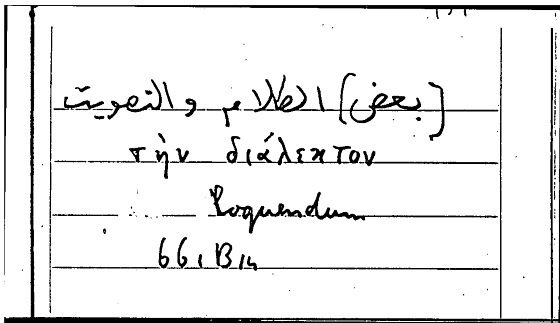 [بعض] الكلام والتصويت
τὴν διάλεκτον
loquendum
661 B14